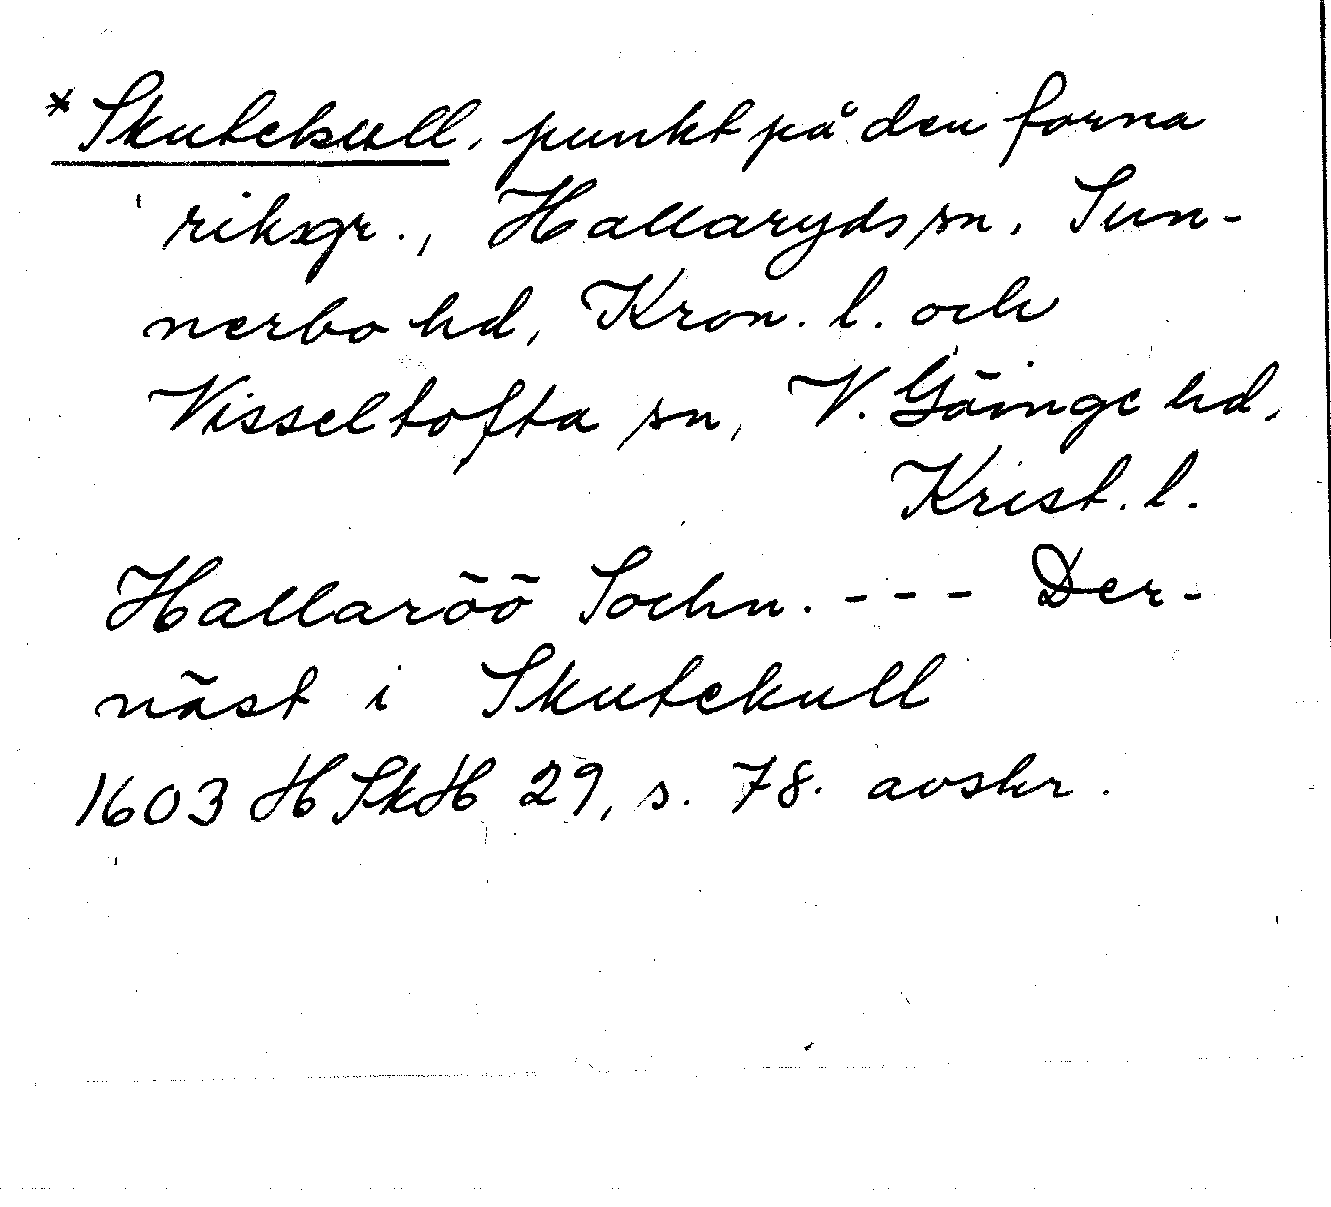 *Skutekull, punkt på den forna
riksgr., Hallaryds sn, Sun-
nerbo hd, Kron. l. och
Visseltofta sn, V. Göinge hd,
Krist. l.
Hallaröö Sochn. --- Der-
näst i Skutekull
1603 HSkH 29, s. 78. avskr.